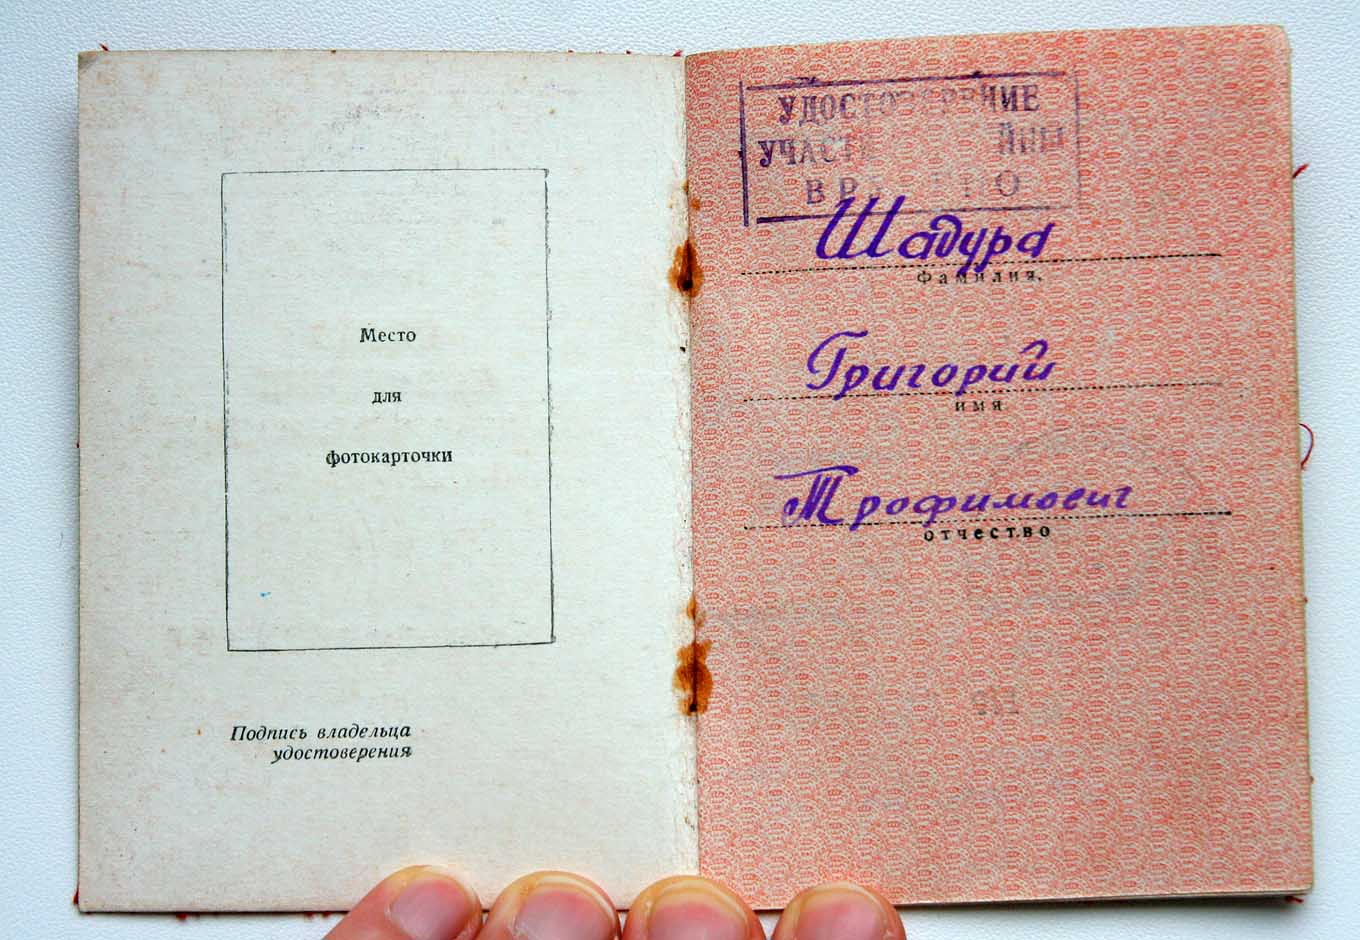 Место
для
фотокарточки
Подпись владельца
удостоверения
УДОСТОВЕРЕНИЕ
Шадура
Фамилия,
Григорий
имя
Трофимович
отчество